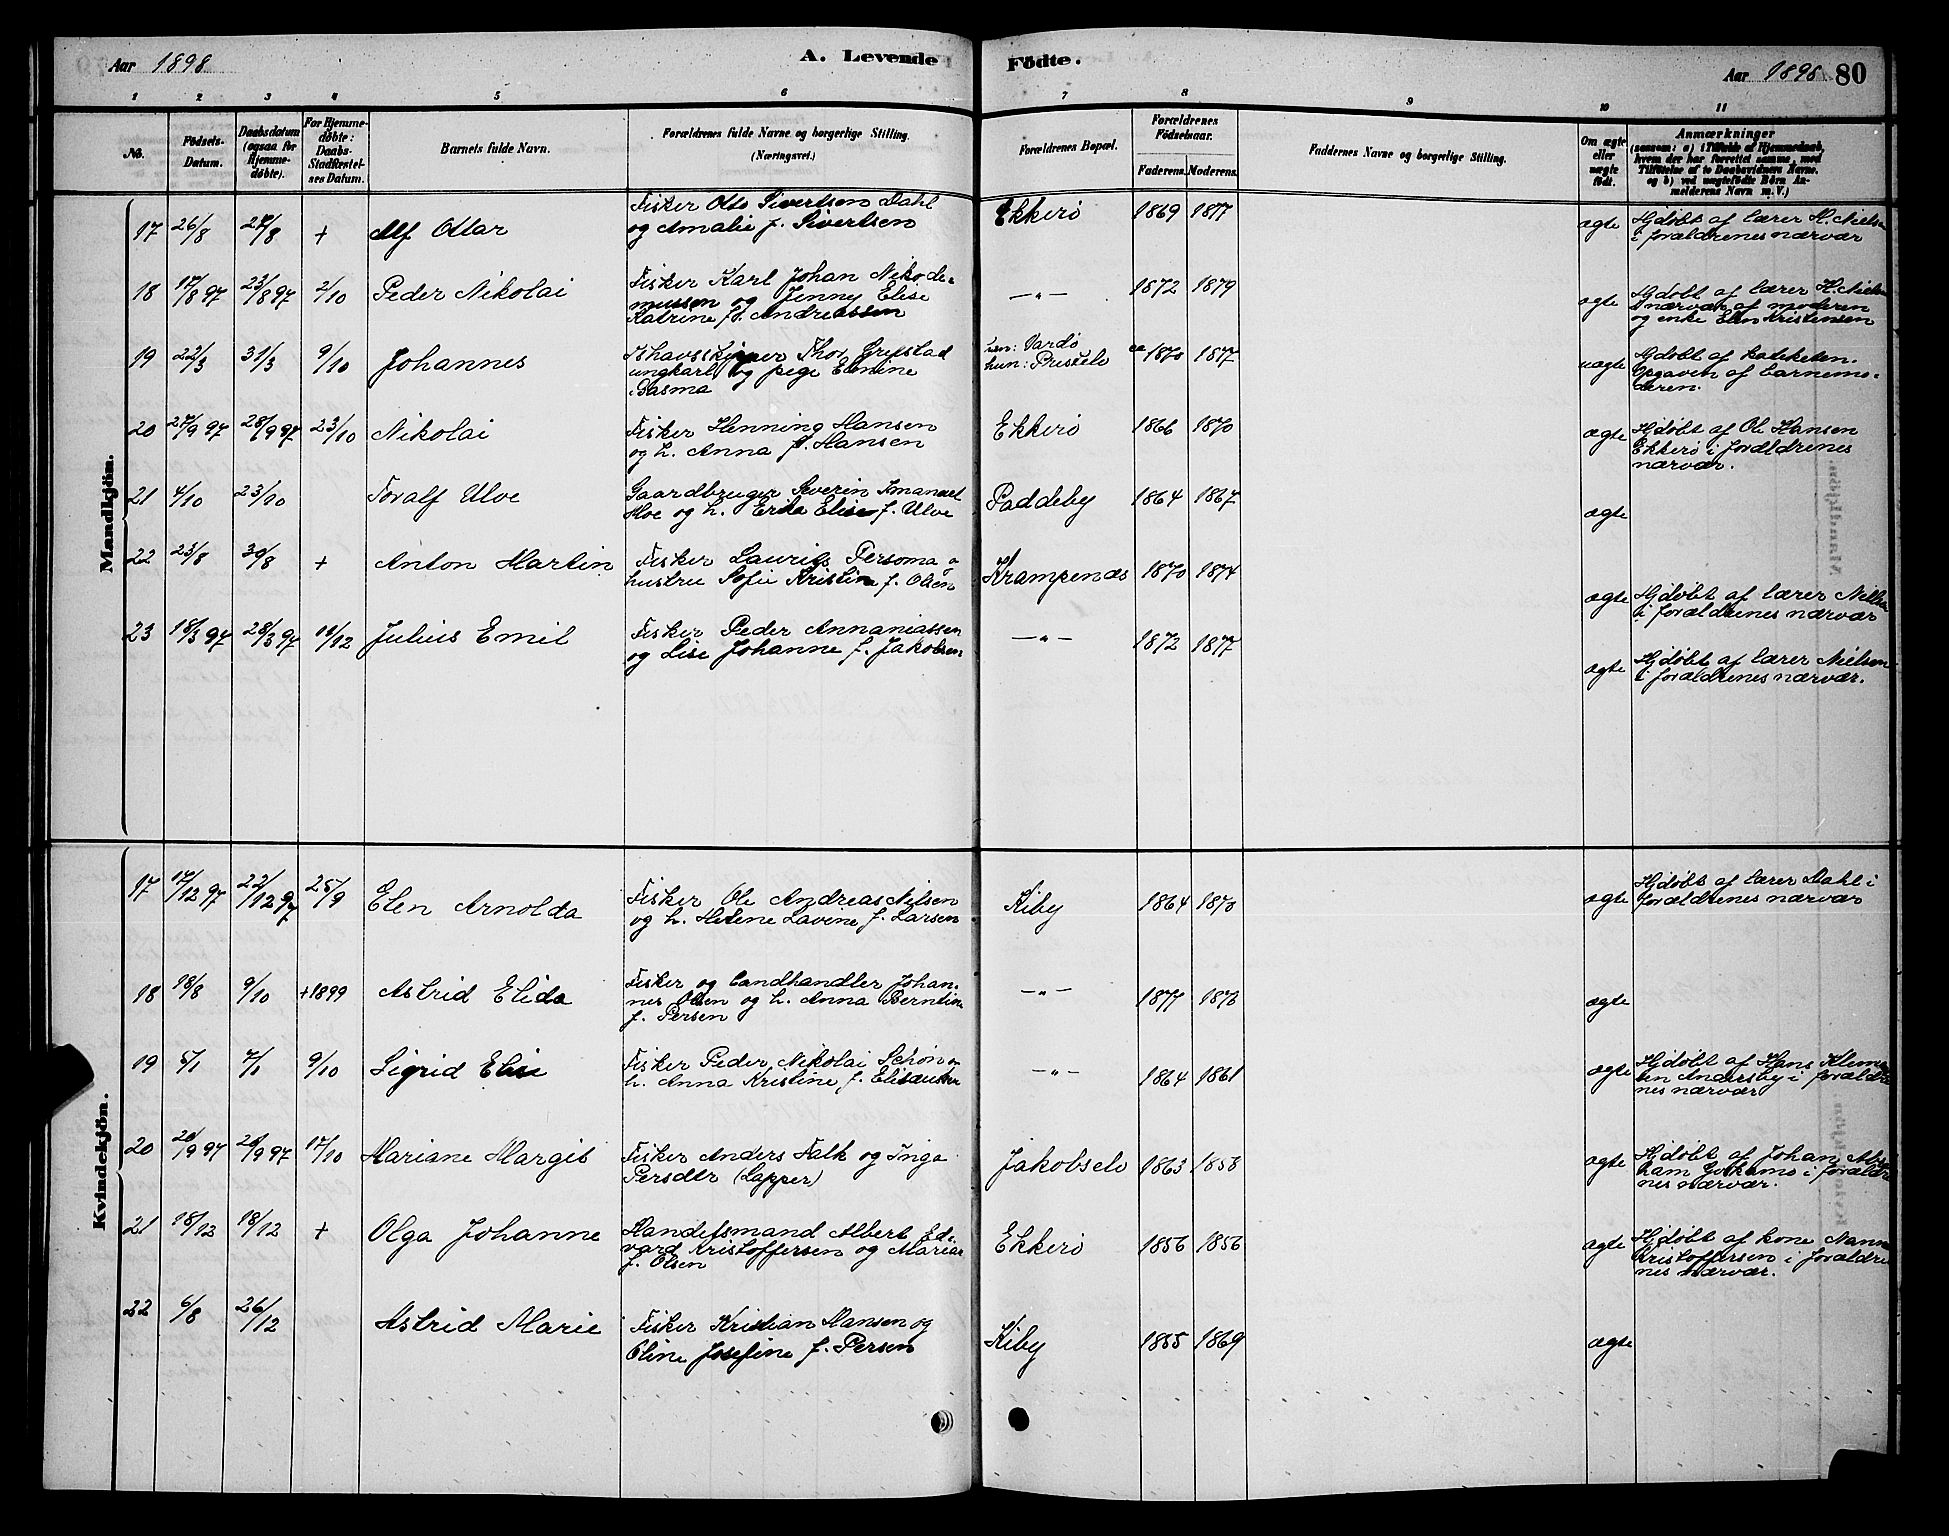 Aar 1898
A. Levende
Födte.
Aar 1898. 80
1 2 3 4 5 6 7 8 9 10 11
No.
Födsels-Datum.
Daabsdatum (ogsaa for Hjemme-döbte).
For Hjemme-döbte: Daabs-Stadfæstel-ses Datum.
Barnets fulde Navn.
Forældrenes fulde Navne og borgerlige Stilling.
(Næringsvei.)
Forældrenes Bopæl.
Forældrenes Födselsaar.
Faderens. Moderens.
Faddernes Navne og borgerlige Stilling.
Om ægte eller uægte födt.
Anmærkninger
(saasom: a) i Tilfælde af Hjemmedaab,
hvem der har forrettet samme, med
Tilföielse af to Daabsvidners Navne,
og b) ved uægtefödte Börn An-
melderens Navn m. V.)
Mandkjön.
17 26/8 27/8 + Alf Ottar
Fisker Otto Sivertsen Dahl
og Amalie f. Sivertsen
Ekkerö 1869 1877 ægte
Hjdøbt af lærer H. Nielsen
i forældrenes nærvær
18 17/8 97 23/8 97 2/10 Peder Nikolai
Fisker Karl Johan Nikode-
mussen og Jenny Elise
Katrine f. Andreassen
—„— 1872 1879 ægte
Hjdøbt af lærer H. Niels
i nærvær af moderen
og enke Elen Kristensen
19 22/3 31/3 9/10 Johannes
Ishavsskipper Thor Grefstad
ungkarl og pige Elmine
Basma
han: Vardö
hun: Pristelv
ca 1870 1877 uægte
Hjdøbt af kateketen.
Opgaven af barnemo-
deren.
20 27/9 97 28/9 97 23/10 Nikolai
Fisker Henning Hansen
og h. Anna f. Hansen
Ekkerö 1866 1870 ægte
Hjdøbt af Ole Hansen
Ekkerö i forældrenes
nærvær.
21 4/10 23/10 Toralf Ulve
Gaardbruger Severin Imanuel
Ulve og h. Erika Elise f. Ulve
Paddeby 1864 1867 ægte
22 23/8 30/8 + Anton Martin
Fisker Laurits Persoma og
hustru Sofie Kristine f. Olsen
Krampenæs 1870 1874 ægte
Hjdøbt af lærer Nielsen
i forældrenes nærvær
23 18/3 97 28/3 97 11/12 Julius Emil
Fisker Peder Annaniassen
og Lise Johanne f. Jakobsen
—„— 1872 1877 ægte
Hjdøbt af lærer Nielsen
i forældrenes nærvær.
Kvindekjön.
17 17/12 97 22/12 97 25/9 Elen Arnolda
Fisker Ole Andreas Nilsen
og h. Helene Lavene f. Larsen
Kiby 1864 1870 ægte
Hjdøbt af lærer Dahl i
forældrenes nærvær
18 18/8 9/10 +1899 Astrid Elida
Fisker og landhandler Johan-
nes Olsen og h. Anna Berntine
f. Persen
—„— 1877 1876 ægte
19 5/1 7/1 9/10 Sigrid Elise
Fisker Peder Nikolai Schön og
h. Anna Kristine f. Eliseussen
—„— 1864 1861 ægte
Hjdøbt af Hans Klemet
sen Andersby i forældre
nes nærvær
20 26/9 97 26/9 97 17/10 Mariane Margit
Fisker Anders Falk og Inga
Persdtr (Lapper)
Jakobselv 1863 1858 ægte
Hjdøbt af Johan Abra
ham i forældre
nes nærvær.
21 18/12 18/12 + Olga Johanne
Handelsmand Albert Ed-
vard Kristoffersen og Marie
f. Olsen
Ekkerö 1856 1856 ægte
Hjdøbt af kone Nanna
Kristoffersen i forældre
nes nærvær.
22 6/8 26/12 Astrid Marie
Fisker Kristian Hansen og
Oline Josefine f. Persen
Kiby 1855 1869 ægte